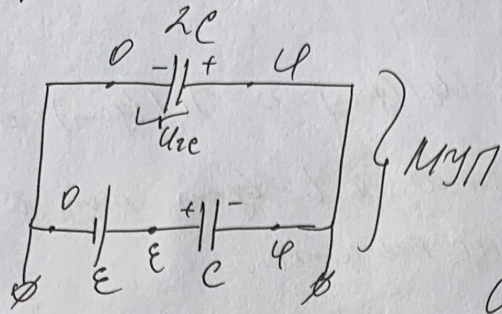 2C
0 - + φ
U2C
МУП
0 + -
ε ε C φ